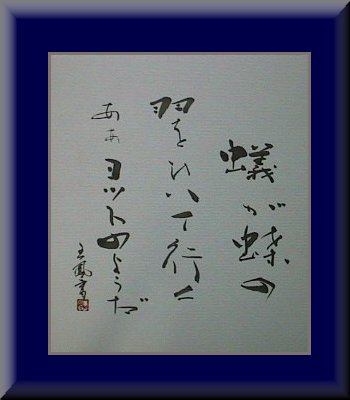 蟻が蝶の
羽をひいて行く
ああヨットのようだ